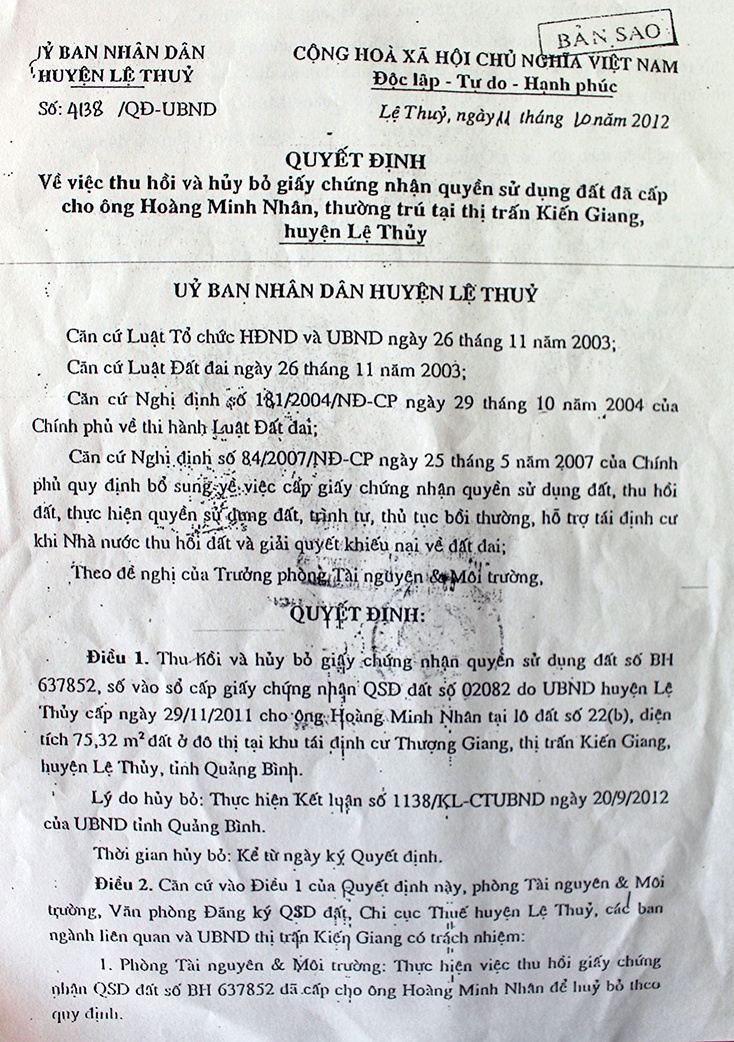 BẢN SAO
UỶ BAN NHÂN DÂN
HUYỆN LỆ THUỶ
CỘNG HOÀ XÃ HỘI CHỦ NGHĨA VIỆT NAM
Độc lập - Tự do - Hạnh phúc
Số: 4138 /QĐ-UBND
Lệ Thuỷ, ngày 11 tháng 10 năm 2012
QUYẾT ĐỊNH
Về việc thu hồi và hủy bỏ giấy chứng nhận quyền sử dụng đất đã cấp
cho ông Hoàng Minh Nhân, thường trú tại thị trấn Kiến Giang,
huyện Lệ Thủy
UỶ BAN NHÂN DÂN HUYỆN LỆ THUỶ
Căn cứ Luật Tổ chức HĐND và UBND ngày 26 tháng 11 năm 2003;
Căn cứ Luật Đất đai ngày 26 tháng 11 năm 2003;
Căn cứ Nghị định số 181/2004/NĐ-CP ngày 29 tháng 10 năm 2004 của
Chính phủ về thi hành Luật Đất đai;
Căn cứ Nghị định số 84/2007/NĐ-CP ngày 25 tháng 5 năm 2007 của Chính
phủ quy định bổ sung về việc cấp giấy chứng nhận quyền sử dụng đất, thu hồi
đất, thực hiện quyền sử dụng đất, trình tự, thủ tục bồi thường, hỗ trợ tái định cư
khi Nhà nước thu hồi đất và giải quyết khiếu nại về đất đai;
Theo đề nghị của Trưởng phòng Tài nguyên & Môi trường,
QUYẾT ĐỊNH:
Điều 1. Thu hồi và hủy bỏ giấy chứng nhận quyền sử dụng đất số BH
637852, số vào sổ cấp giấy chứng nhận QSD đất số 02082 do UBND huyện Lệ
Thủy cấp ngày 29/11/2011 cho ông Hoàng Minh Nhân tại lô đất số 22(b), diện
tích 75,32 m² đất ở đô thị tại khu tái định cư Thượng Giang, thị trấn Kiến Giang,
huyện Lệ Thủy, tỉnh Quảng Bình.
Lý do hủy bỏ: Thực hiện Kết luận số 1138/KL-CTUBND ngày 20/9/2012
của UBND tỉnh Quảng Bình.
Thời gian hủy bỏ: Kể từ ngày ký Quyết định.
Điều 2. Căn cứ vào Điều 1 của Quyết định này, phòng Tài nguyên & Môi
trường, Văn phòng Đăng ký QSD đất, Chi cục Thuế huyện Lệ Thuỷ, các ban
ngành liên quan và UBND thị trấn Kiến Giang có trách nhiệm:
1. Phòng Tài nguyên & Môi trường: Thực hiện việc thu hồi giấy chứng
nhận QSD đất số BH 637852 đã cấp cho ông Hoàng Minh Nhân để huỷ bỏ theo
quy định.